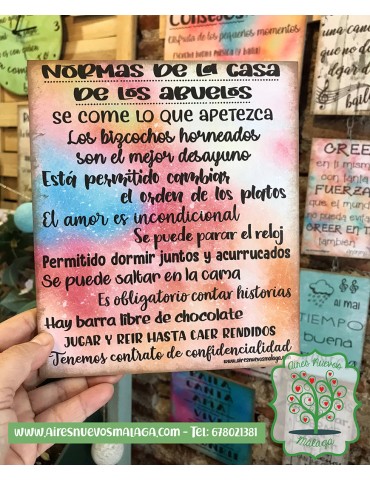 CONSEJOS
Disfruta de los pequeños momentos
NORMAS DE LA CASA
DE LOS ABUELOS
SE COME LO QUE APETEZCA
Los bizcochos horneados
son el mejor desayuno
Está permitido cambiar
el orden de los platos
El amor es incondicional
Se puede parar el reloj
Permitido dormir juntos y acurrucados
Se puede saltar en la cama
Es obligatorio contar historias
Hay barra libre de chocolate
JUGAR Y REIR HASTA CAER RENDIDOS
Tenemos contrato de confidencialidad
www.airesnuevosmalaga.com
CREE
en ti mismo
FUERZA
CREER EN T
también
al mal
TIEMPO
buena
Aires Nuevos
Málaga
www.airesnuevosmalaga.com - Tel: 678021381